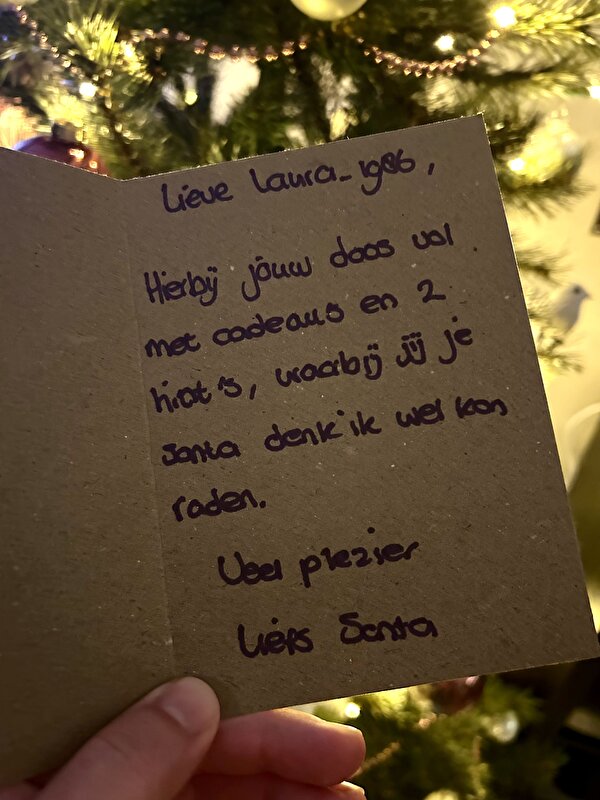 Lieve Laura_1986,
Hierbij jouw doos vol
met cadeaus en 2
hint's, waarbij jij je
Santa denk ik wel kan
raden.
Veel plezier
Liefs Santa